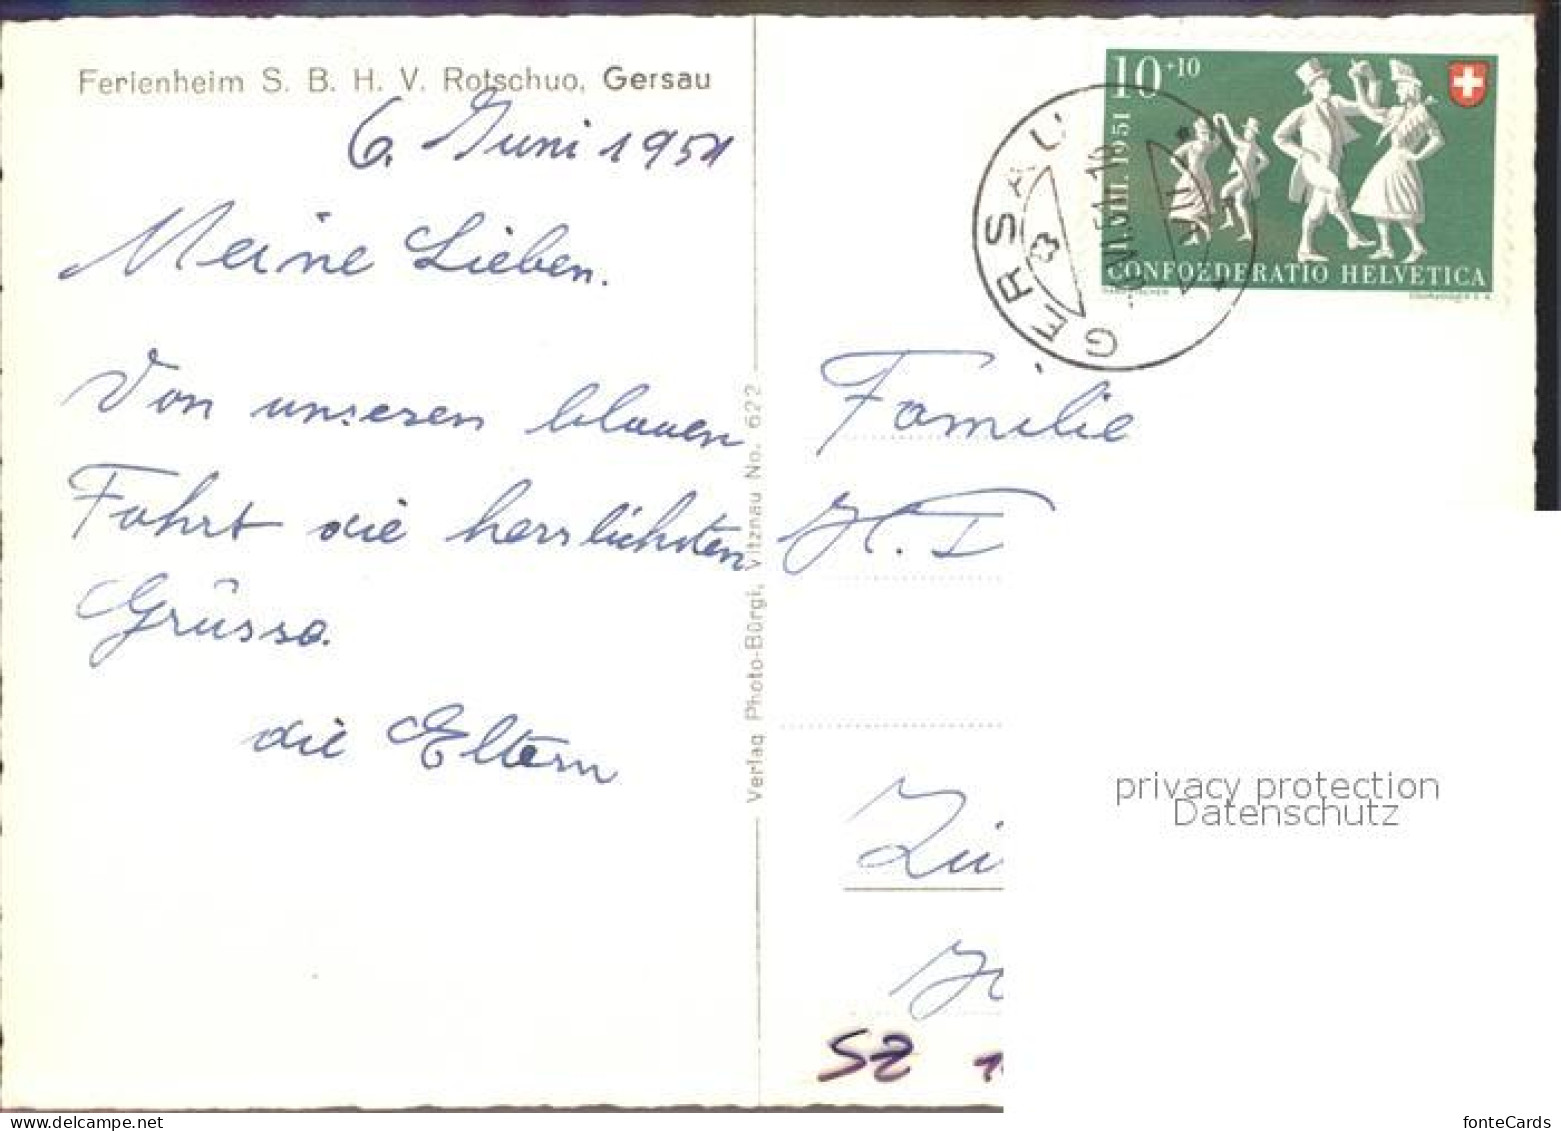 Ferienheim S. B. H. V. Rotschuo, Gersau
6. Juni 1951
Meine Lieben.
Von unseren blauen
Fahrt die herrlichsten
Grüsse.
die Eltern
Verlag Photo-Bürgi, Vitznau No. 622
10+10
VIII. 1951
CONFOEDERATIO HELVETICA
GERSAU
Familie
H. T
Zü
SZ
privacy protection
Datenschutz
fonteCards